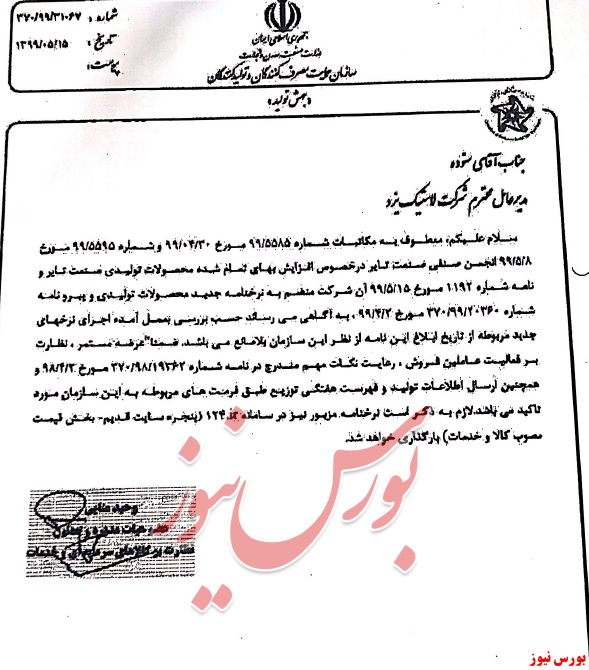 شماره: ۳۷۰/۹۹/۳۱۰۶۷
تاریخ: ۱۳۹۹/۰۵/۱۵
پیوست:
جمهوری اسلامی ایران
وزارت صنعت، معدن و تجارت
سازمان حمایت مصرف کنندگان و تولیدکنندگان
«جهش تولید»
جناب آقای ستوده
مدیرعامل محترم شرکت لاستیک یزد
سلام علیکم، معطوف به مکاتبات شماره ۹۹/۵۵۸۵ مورخ ۹۹/۰۴/۳۰ و شماره ۹۹/۵۵۹۵ مورخ
۹۹/۵/۸ انجمن صنفی صنعت تایر درخصوص افزایش بهای تمام شده محصولات تولیدی صنعت تایر و
نامه شماره ۱۱۹۲ مورخ ۹۹/۵/۱۵ آن شرکت منضم به نرخنامه جدید محصولات تولیدی و پیرو نامه
شماره ۳۷۰/۹۹/۲۰۳۶۰ مورخ ۹۹/۴/۲ ، به آگاهی می رساند حسب بررسی بعمل آمده اجرای نرخهای
جدید مربوطه از تاریخ ابلاغ این نامه از نظر این سازمان بلامانع می باشد. ضمناً عرضه مستمر ، نظارت
بر فعالیت عاملین فروش ، رعایت نکات مهم مندرج در نامه شماره ۳۷۰/۹۸/۱۹۳۶۲ مورخ ۹۸/۴/۳ و
همچنین ارسال اطلاعات تولید و فهرست هفتگی توزیع طبق فرمت های مربوطه به این سازمان مورد
تاکید می باشد.لازم به ذکر است نرخنامه مزبور نیز در سامانه ۱۲۴ (پنجره سایت قدیم- بخش قیمت
مصوب کالا و خدمات) بارگذاری خواهد شد.
وحید منایی
عضو هیات عامل و معاون
نظارت بر کالاهای سرمایه ای و خدمات
بورس نیوز
بورس نیوز